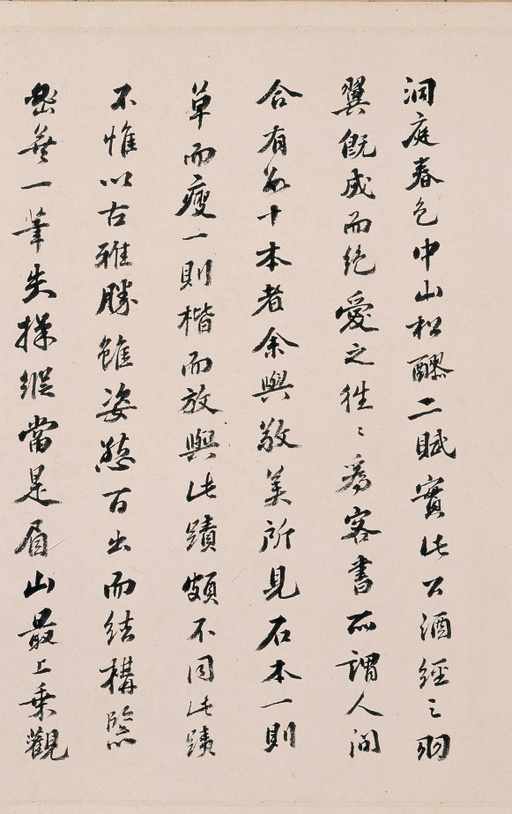 洞庭春色中山松醪二賦實此公酒經之羽
翼既成而絕愛之往〻爲客書所謂人間
合有數十本者余與敬美所見石本一則
草而瘦一則楷而放與此蹟頗不同此蹟
不惟以古雅勝雖姿態百出而結構緊
密無一筆失操縱當是眉山最上乘觀